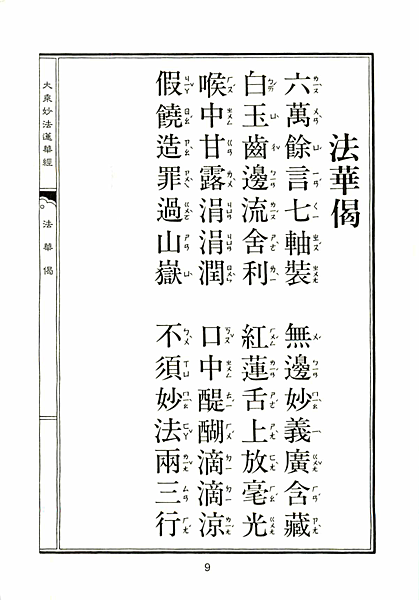 法華偈
六萬餘言七軸裝　無邊妙義廣含藏
白玉齒邊流舍利　紅蓮舌上放毫光
喉中甘露涓涓潤　口中醍醐滴滴涼
假饒造罪過山嶽　不須妙法兩三行
大乘妙法蓮華經
法華偈
9